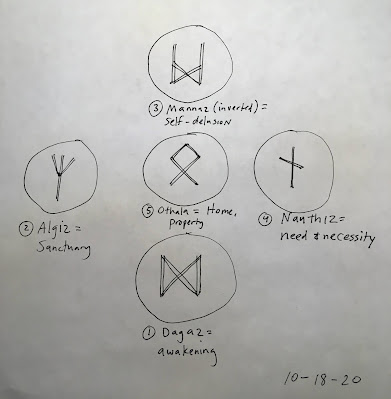 ③ Mannaz (inverted) =
self-delusion
② Algiz =
Sanctuary
⑤ Othala = Home,
property
④ Nauthiz =
need & necessity
① Dagaz =
awakening
10-18-20